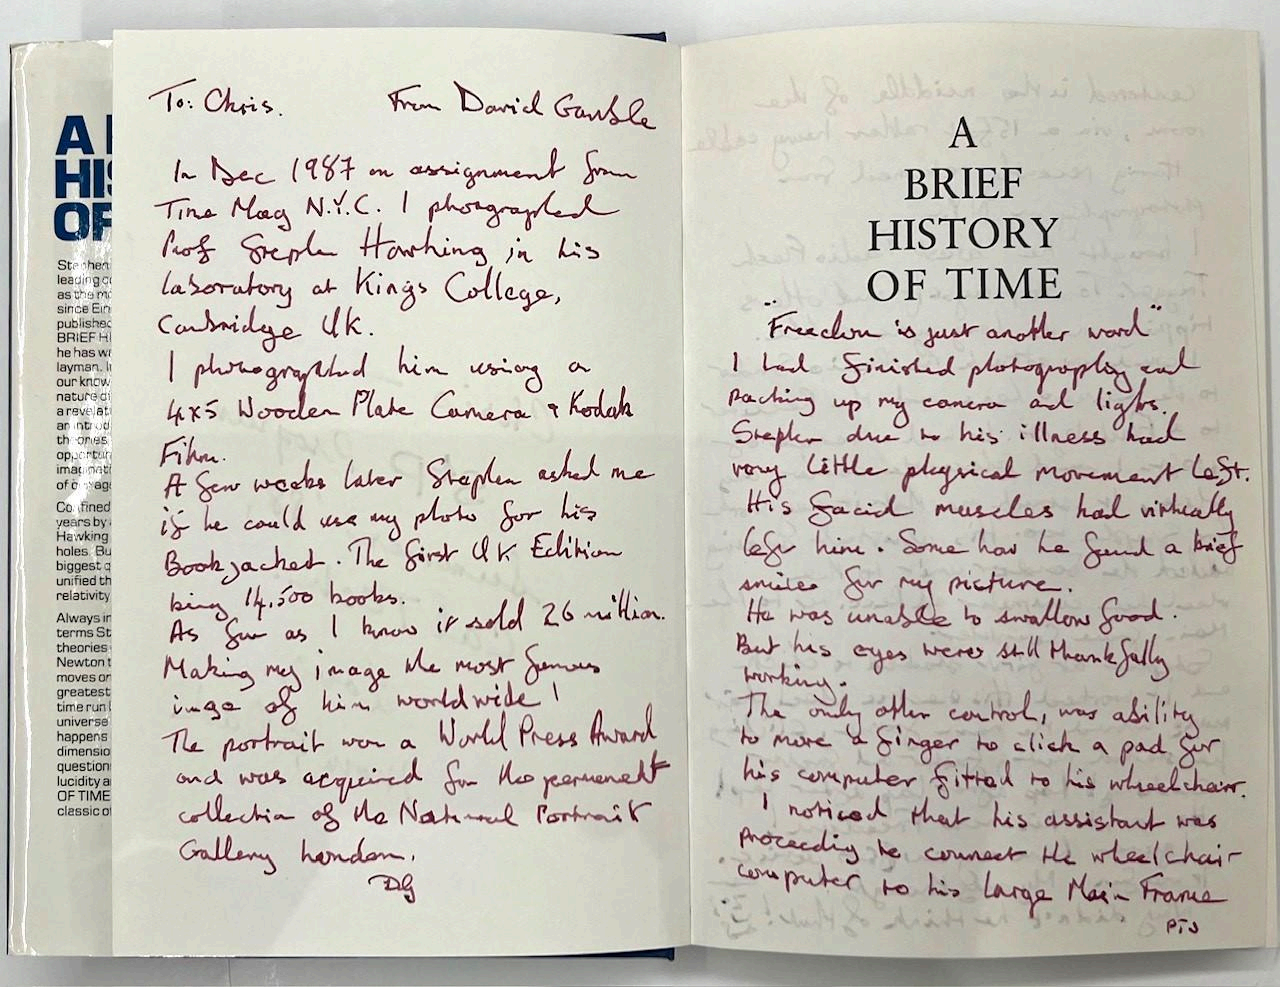 A
HIS
OF
Stephen
leading co
as the mo
since Ein
published
BRIEF HI
he has wr
layman. In
our know
nature of
a revelati
an introd
theories
opportun
imaginati
of our ag
Confined
years by
Hawking
holes. Bu
biggest q
unified th
relativity
Always in
terms St
theories
Newton t
moves on
greatest
time run
universe
happens
dimensio
question
lucidity a
OF TIME
classic of
To: Chris. From David Gamble
In Dec 1987 on assignment from
Time Mag N.Y.C. I photographed
Prof Stephen Hawking in his
laboratory at Kings College,
Cambridge UK.
I photographed him using a
4x5 Wooden Plate Camera & Kodak
Film.
A few weeks later Stephen asked me
if he could use my photo for his
Book jacket. The first UK Edition
being 14,500 books.
As far as I know it sold 26 million.
Making my image the most famous
image of him worldwide!
The portrait won a World Press Award
and was acquired for the permenent
collection of the National Portrait
Gallery London.
DG
A
BRIEF
HISTORY
OF TIME
"Freedom is just another word"
I had finished photography and
packing up my camera and lights.
Stephen due to his illness had
very little physical movement left.
His facial muscles had virtually
left him. Some how he found a brief
smile for my picture.
He was unable to swallow food.
But his eyes were still thankfully
working.
The only other control, was ability
to move a finger to click a pad for
his computer fitted to his wheelchair.
I noticed that his assistant was
proceeding to connect the wheelchair
computer to his large Main Frame
PTO